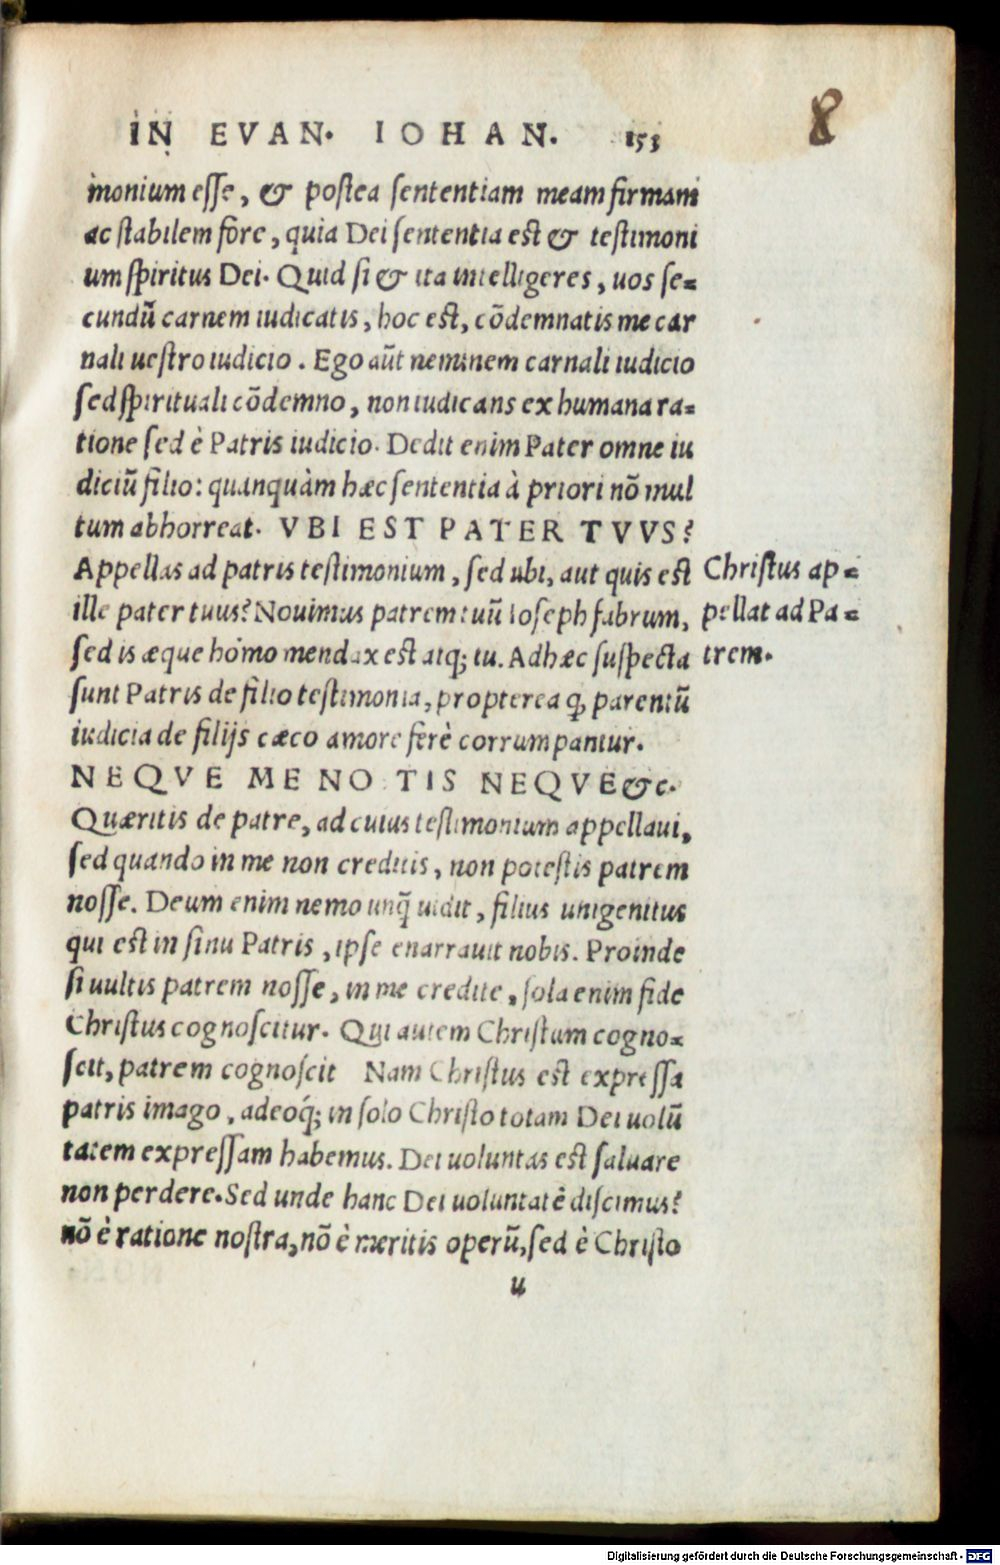 IN EVAN. IOHAN. 153
8
monium esse, & postea sententiam meam firmam
ac stabilem fore, quia Dei sententia est & testimoni
um spiritus Dei. Quid si & ita intelligeres, uos se=
cundũ carnem iudicatis, hoc est, cõdemnatis me car
nali uestro iudicio. Ego aũt neminem carnali iudicio
sed spirituali cõdemno, non iudicans ex humana ra=
tione sed è Patris iudicio. Dedit enim Pater omne iu
diciũ filio: quanquàm hæc sententia à priori nõ mul
tum abhorreat. VBI EST PATER TVVS?
Appellas ad patris testimonium, sed ubi, aut quis est
ille pater tuus? Nouimus patrem tuũ Ioseph fabrum,
sed is æque homo mendax est atq; tu. Adhæc suspecta
sunt Patris de filio testimonia, propterea q̃ parentũ
iudicia de filijs cæco amore ferè corrumpantur.
Christus ap=
pellat ad Pa=
trem.
NEQVE ME NO TIS NEQVE &c.
Quæritis de patre, ad cuius testimonium appellaui,
sed quando in me non creditis, non potestis patrem
nosse. Deum enim nemo unq̃ uidit, filius unigenitus
qui est in sinu Patris, ipse enarrauit nobis. Proinde
si uultis patrem nosse, in me credite, sola enim fide
Christus cognoscitur. Qui autem Christum cogno=
scit, patrem cognoscit Nam Christus est expressa
patris imago, adeoq́; in solo Christo totam Dei uolũ
tatem expressam habemus. Dei uoluntas est saluare
non perdere. Sed unde hanc Dei uoluntatẽ discimus?
nõ è ratione nostra, nõ è meritis operũ, sed è Christo
u
Digitalisierung gefördert durch die Deutsche Forschungsgemeinschaft - DFG